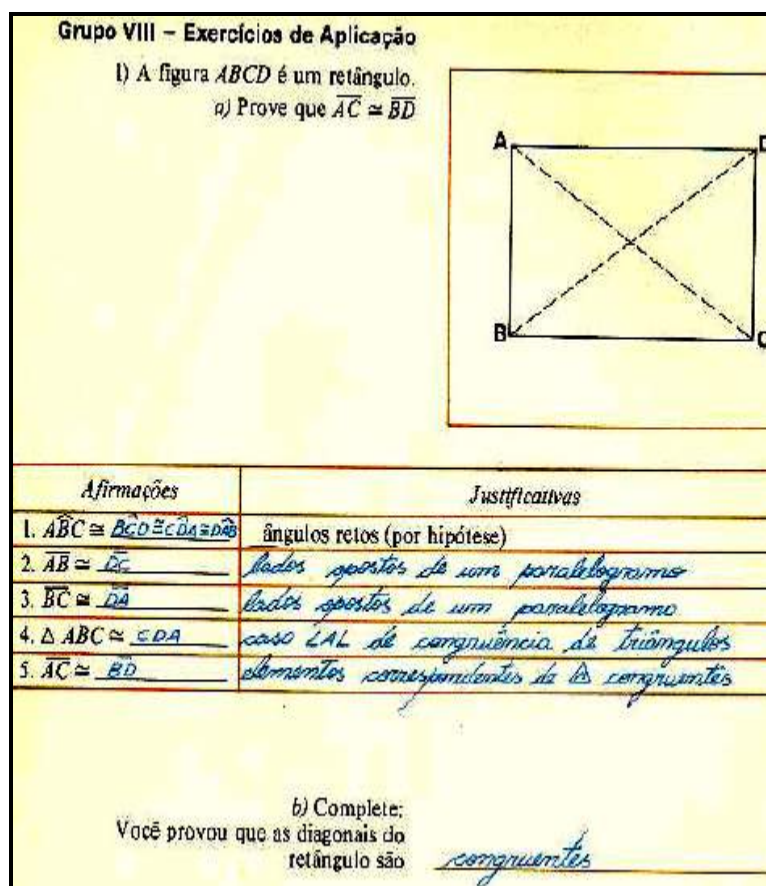 Grupo VIII – Exercícios de Aplicação
1) A figura ABCD é um retângulo.
a) Prove que A̅C̅ ≅ B̅D̅
A
B
C
Afirmações Justificativas
1. AB̂C ≅ BĈD ≅ CD̂A ≅ DÂB ângulos retos (por hipótese)
2. A̅B̅ ≅ D̅C̅ lados opostos de um paralelogramo
3. B̅C̅ ≅ D̅A̅ lados opostos de um paralelogramo
4. Δ ABC ≅ CDA caso LAL de congruência de triângulos
5. A̅C̅ ≅ B̅D̅ elementos correspondentes de Δs congruentes
b) Complete:
Você provou que as diagonais do
retângulo são congruentes